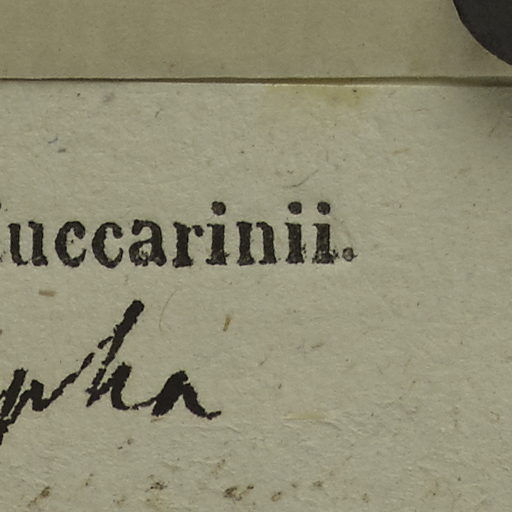 uccarinii.
pha